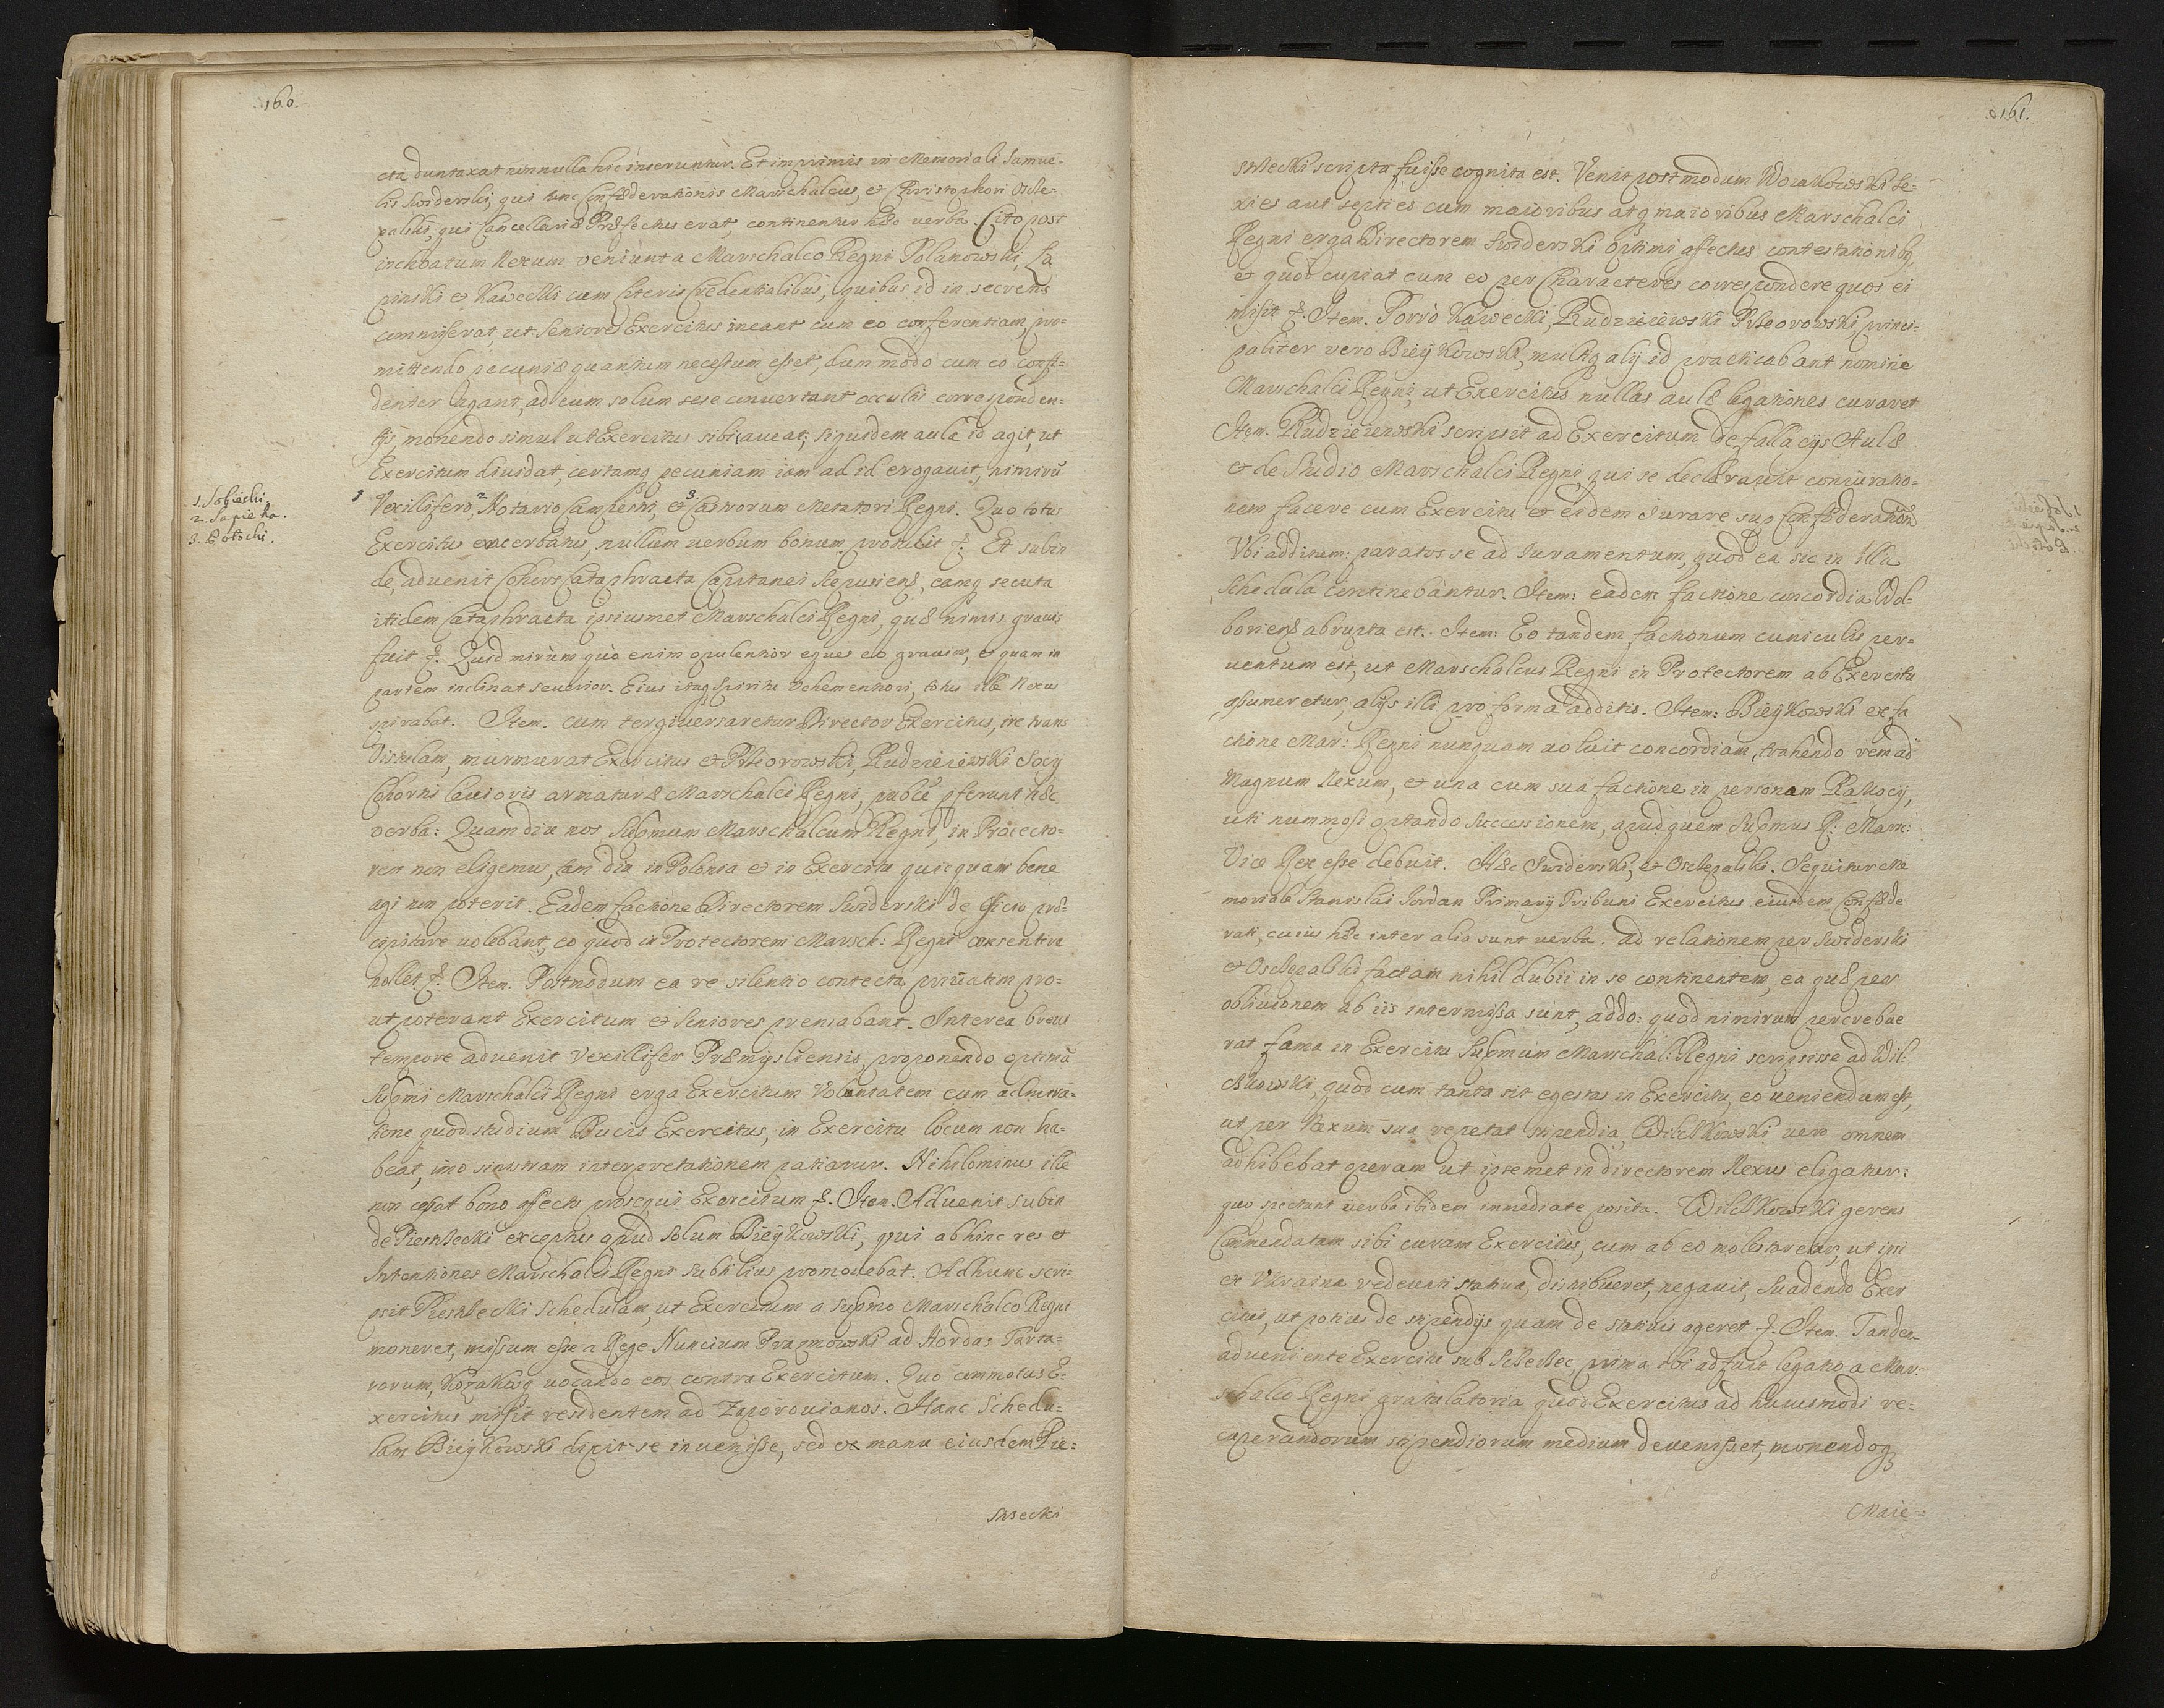 160.
cta duntaxat non nulla hic inseruntur. Et imprimis in Memoriali Samue-
lis Swiderski, qui tunc Confœderationis Marschalcus, et Christophori Oscle-
palski, qui Cancellariæ Præfectus erat, continentur hæc verba. Cito post
inchoatum Nexum veniunt a Marschalco Regni Polanowski, La
pinski et Kawecki cum literis Credentialibus, quibus id in secretis
commiserat, ut Seniores Exercitus ineant cum eo conferentiam, pro-
mittendo pecuniæ quantum necessum esset, dum modo cum eo confi-
denter agant, ad eum solum sese convertant occultis corresponden-
tijs, monendo simul ut Exercitus sibi caveat; siquidem aula id agit, ut
Exercitum dividat, certamq pecuniam iam ad id erogavit, nimirū
1 Vexillifero, 2 Notario Campestri, et 3. Castrorum Metatori Regni. Quo totus
1. Sobieski.
2. Sapieha.
3. Potocki.
Exercitus exacerbatus, nullum verbum bonum protulit &. Et subin
de, advenit Cohors Cataphracta Capitanei Sepusiens, eamq secuta
itidem Cataphracta ipsiusmet Marschalci Regni, quæ nimis gravis
fuit &. Quid mirum quò enim opulentior eques eo gravior, et quam in
partem inclinat severior. Eius itaq Spiritu vehementiori, totus ille Nexus
spirabat. Item. cum tergiversaretur Director Exercitus, ire trans
Vistulam, murmurat Exercitus et Pełiorowski, Rudzieiewski Socij
Cohortis levioris armaturæ Marschalci Regni, publē pferunt hæc
verba: Quam diu nos Supmum Marschalcum Regni, in Protecto-
rem non eligemus, tam diu in Polonia et in Exercitu quicquam bene
agi non poterit. Eadem factione Directorem Swiderski de officio præ-
cipitare volebant, eo quod in Protectorem Marsch: Regni consentire
nollet &. Item. Postmodum ea re silentio contecta, privatim pro-
ut poterant Exercitum et Seniores prensabant. Interea brevi
tempore advenit Vexillifer Præmysliensis, proponendo optimā
Supmi Marschalci Regni erga Exercitum Voluntatem cum admira-
tione quod studium Ducis Exercitus, in Exercitu locum non ha-
beat, imo sinistram interpretationem patiatur. Nihilominus ille
non cessat bono affectu prosequi Exercitum &. Item. Advenit subin
de Piestrzecki exceptus apud solum Bieÿkowski, qui abhinc res et
Intentiones Marschalci Regni subtilius promovebat. Ad hunc scri-
psit Piestrzecki Schedulam, ut Exercitum a Supmo Marschalco Regni
moneret, missum esse a Rege Nuncium Prazmowski ad Hordas Tarta-
rorum, Kozakosq vocando eos contra Exercitum. Quo commotus E-
xercitus misit residentem ad Zaporovianos. Hanc Schedu-
lam Bieÿkowski dixit se invenisse, sed ex manu eiusdem Pie-
strzecki
161.
strzecki scripta fuisse cognita est. Venit postmodum Wolakowski se-
xies aut septies cum maioribus atq maioribus Marschalci
Regni erga Directorem Swiderski optimi affectus contestationibq,
et quod cupiat cum eo per Characteres correspondere quos ei
misit &. Item. Porrò Kawecki, Rudzieiewski, Pełiorowski, princi-
paliter vero Bieÿkowski, multiq alij id practicabant nomine
Marschalci Regni, ut Exercitus nullas aulæ legationes curaret
Item. Rudzieiewski scripsit ad Exercitum de fallacijs Aulæ
et de Studio Marschalci Regni, qui se declaravit coniuratio-
nem facere cum Exercitu et eidem Iurare sup Confœderation
Ubi additum: paratos se ad Iuramentum, quod ea sic in illa
Schedula continebantur. Item: eadem factione concordia Wol-
boriens abrupta est. Item: Eo tandem factionum cuniculis per-
ventum est, ut Marschalcus Regni in Protectorem ab Exercitu
assumeretur, alijs illi pro forma additis. Item: Bieÿkowski ex fa
ctione Mar: Regni nunquam voluit concordiam, trahendo rem ad
Magnum Nexum, et una cum sua factione in personam Rakocÿ,
uti nummosi optando Successionem, apud quem Supmus R: Mar:
Vice Rex esse debuit. Hæc Swiderski, et Osclepalski. Sequitur Me
moriale Stanislai Iordan Primarij Tribuni Exercitus eiusdem Confœde
rati, cuius hæc inter alia sunt verba. ad relationem per Swiderski
et Osclepalski factam nihil dubii in se continentem, ea quæ per
oblivionem ab iis intermissa sunt, addo: quod nimirum percrebue
rat fama in Exercitu Supmum Marschal: Regni scripsisse ad Wil-
czkowski, quod cum tanta sit egestas in Exercitu, eo veniendum est,
ut per Nexum sua repetat stipendia, Wilczkowski vero omnem
adhibebat operam ut ipsemet in directorem Nexus eligatur:
quo spectant verba ibidem immediate posita. Wilczkowski gerens
Commendatam sibi curam Exercitus, cum ab eo molestaretur, ut ipsi
ex Ukraina redeunti stativa, distribueret, negavit, suadendo Exer
citui, ut potius de stipendijs quam de stativis ageret &. Item. Tandem
adveniente Exercitu sub prima ibi adfuit legatio a Mar-
schalco Regni gratulatoria quod Exercitus ad huiusmodi re-
cuperandorum stipendiorum medium devenisset, monendoq
Maie-